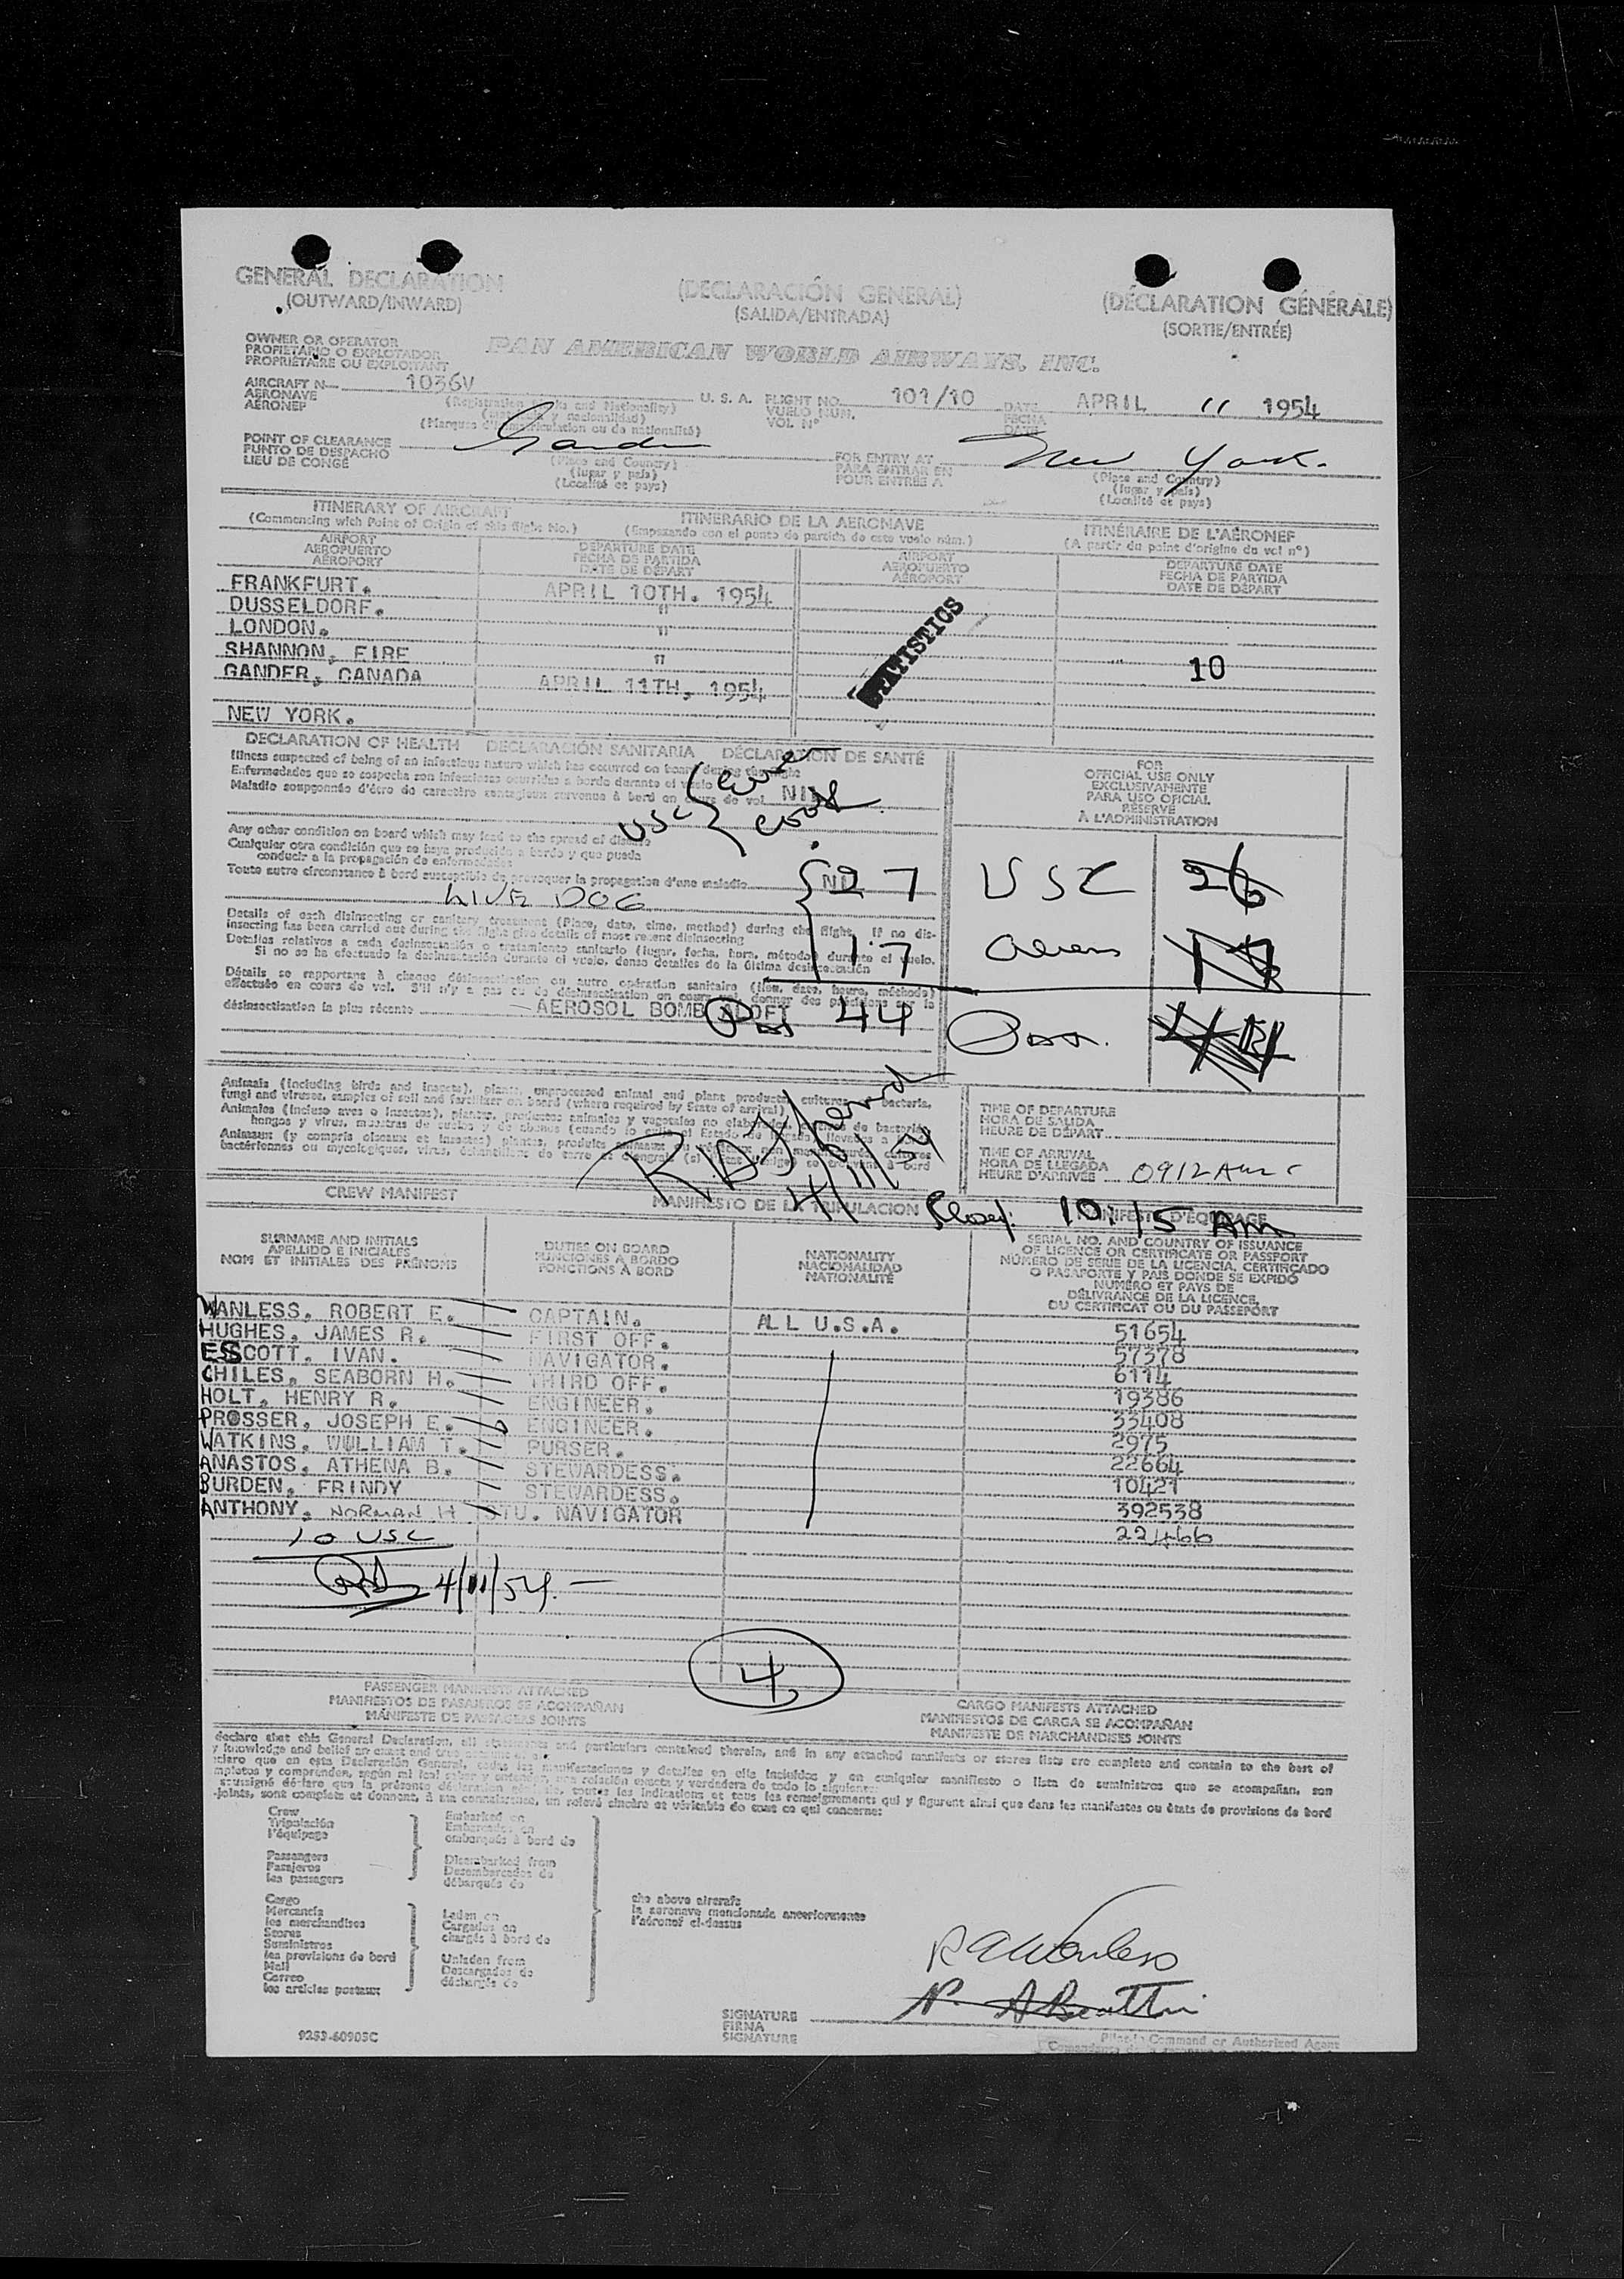 GENERAL DECLARATION
(OUTWARD/INWARD)
(DECLARACIÓN GENERAL)
(SALIDA/ENTRADA)
(DÉCLARATION GÉNÉRALE)
(SORTIE/ENTRÉE)
OWNER OR OPERATOR
PROPIETARIO O EXPLOTADOR
PROPRIÉTAIRE OU EXPLOITANT
PAN AMERICAN WORLD AIRWAYS, INC.
AIRCRAFT N— 1036V
AERONAVE
AÉRONEF
(Registration Marks and Nationality)
U. S. A.
FLIGHT NO. 101/10
VUELO NUM.
VOL Nº
DATE APRIL 11 1954
FECHA
DATE
POINT OF CLEARANCE Gander
PUNTO DE DESPACHO
LIEU DE CONGÉ
(Place and Country)
(lugar y país)
(Localité et pays)
FOR ENTRY AT New York.
PARA ENTRAR EN
POUR ENTRÉE A
(Place and Country)
(lugar y país)
(Localité et pays)
ITINERARY OF AIRCRAFT
(Commencing with Point of Origin of this flight No.)
ITINERARIO DE LA AERONAVE
(Empezando con el punto de partida de este vuelo núm.)
ITINÉRAIRE DE L'AÉRONEF
(A partir du point d'origine du vol nº)
AIRPORT
AEROPUERTO
AÉROPORT
DEPARTURE DATE
FECHA DE PARTIDA
DATE DE DÉPART
AIRPORT
AEROPUERTO
AÉROPORT
DEPARTURE DATE
FECHA DE PARTIDA
DATE DE DÉPART
FRANKFURT. APRIL 10TH. 1954
DUSSELDORF. "
LONDON. "
SHANNON, EIRE "
GANDER, CANADA APRIL 11TH, 1954
NEW YORK.
STATISTICS
10
DECLARATION OF HEALTH DECLARACIÓN SANITARIA DÉCLARATION DE SANTÉ
Illness suspected of being of an infectious nature which has occurred on board during the flight
Enfermedades que se sospecha son infecciosas ocurridas a bordo durante el vuelo
Maladie soupçonnée d'être de caractère contagieux survenue à bord en cours de vol NIL
USC
Any other condition on board which may lead to the spread of disease
Cualquier otra condición que se haya producido a bordo y que pueda
conducir a la propagación de enfermedades
Toute autre circonstance à bord susceptible de provoquer la propagation d'une maladie
27
LIVE DOG
Details of each disinsecting or sanitary treatment (Place, date, time, method) during the flight. If no dis-
insecting has been carried out during the flight give details of most recent disinsecting
Detalles relativos a cada desinsectación o tratamiento sanitario (lugar, fecha, hora, método) durante el vuelo.
Si no se ha efectuado la desinsectación durante el vuelo, dense detalles de la última desinsectación
17
désinsectisation la plus récente AEROSOL BOMB ALOFT
Pas 44
FOR
OFFICIAL USE ONLY
EXCLUSIVAMENTE
PARA USO OFICIAL
RÉSERVÉ
À L'ADMINISTRATION
USC 26
Aliens
Pass.
Animals (including birds and insects), plants, unprocessed animal and plant products, cultures, bacteria,
fungi and viruses, samples of soil and fertilizer on board (where required by State of arrival)
4/11/54
TIME OF DEPARTURE
HORA DE SALIDA
HEURE DE DÉPART
TIME OF ARRIVAL
HORA DE LLEGADA
HEURE D'ARRIVÉE 0912
10:15 Am
CREW MANIFEST
MANIFIESTO DE LA TRIPULACION
MANIFESTE D'ÉQUIPAGE
SURNAME AND INITIALS
APELLIDO E INICIALES
NOM ET INITIALES DES PRÉNOMS
DUTIES ON BOARD
FUNCIONES A BORDO
FONCTIONS À BORD
NATIONALITY
NACIONALIDAD
NATIONALITÉ
SERIAL NO. AND COUNTRY OF ISSUANCE
OF LICENCE OR CERTIFICATE OR PASSPORT
NÚMERO DE SERIE DE LA LICENCIA, CERTIFICADO
O PASAPORTE Y PAIS DONDE SE EXPIDÓ
NUMÉRO ET PAYS DE
DÉLIVRANCE DE LA LICENCE,
DU CERTIFICAT OU DU PASSEPORT
WANLESS, ROBERT E. CAPTAIN. ALL U.S.A. 51654
HUGHES, JAMES R. FIRST OFF. 57378
ESSCOTT, IVAN. NAVIGATOR. 6114
CHILES, SEABORN H. THIRD OFF. 19386
HOLT, HENRY R. ENGINEER. 33408
PROSSER, JOSEPH E. ENGINEER. 2975
WATKINS, WULLIAM T. PURSER. 22664
ANASTOS, ATHENA B. STEWARDESS. 10421
BURDEN, FRINDY STEWARDESS. 392538
ANTHONY, NORMAN H. STU. NAVIGATOR 22466
10 USC
4/11/54.
4
PASSENGER MANIFESTS ATTACHED
MANIFIESTOS DE PASAJEROS SE ACOMPAÑAN
MANIFESTE DE PASSAGERS JOINTS
CARGO MANIFESTS ATTACHED
MANIFIESTOS DE CARGA SE ACOMPAÑAN
MANIFESTE DE MARCHANDISES JOINTS
declare that this General Declaration, all statements and particulars contained therein, and in any attached manifests or stores lists are complete and contain to the best of
y knowledge and belief an exact and true
claro que en esta Declaración General, todas las manifestaciones y detalles en ella incluidos y en cualquier manifiesto o lista de suministros que se acompañan, son
mpletos y comprenden, según mi leal saber y entender, una relación exacta y verdadera de todo lo siguiente:
soussigné déclare que la présente déclaration générale, toutes les indications et tous les renseignements qui y figurent ainsi que dans les manifestes ou états de provisions de bord
-joints, sont complets et donnent, à ma connaissance, un relevé sincère et véritable de tout ce qui concerne:
Crew
Tripulación
l'équipage
Passengers
Pasajeros
les passagers
Cargo
Mercancía
les merchandises
Stores
Suministros
les provisions de bord
Mail
Correo
les articles postaux
Embarked on
Embarcados en
embarqués à bord de
Disembarked from
Desembarcados de
débarqués de
Laden on
Cargados en
chargés à bord de
Unladen from
Descargados de
déchargés de
the above aircraft
la aeronave mencionada anteriormente
l'aéronef ci-dessus
SIGNATURE
FIRNA
SIGNATURE
Pilot in Command or Authorized Agent
9253-60905C